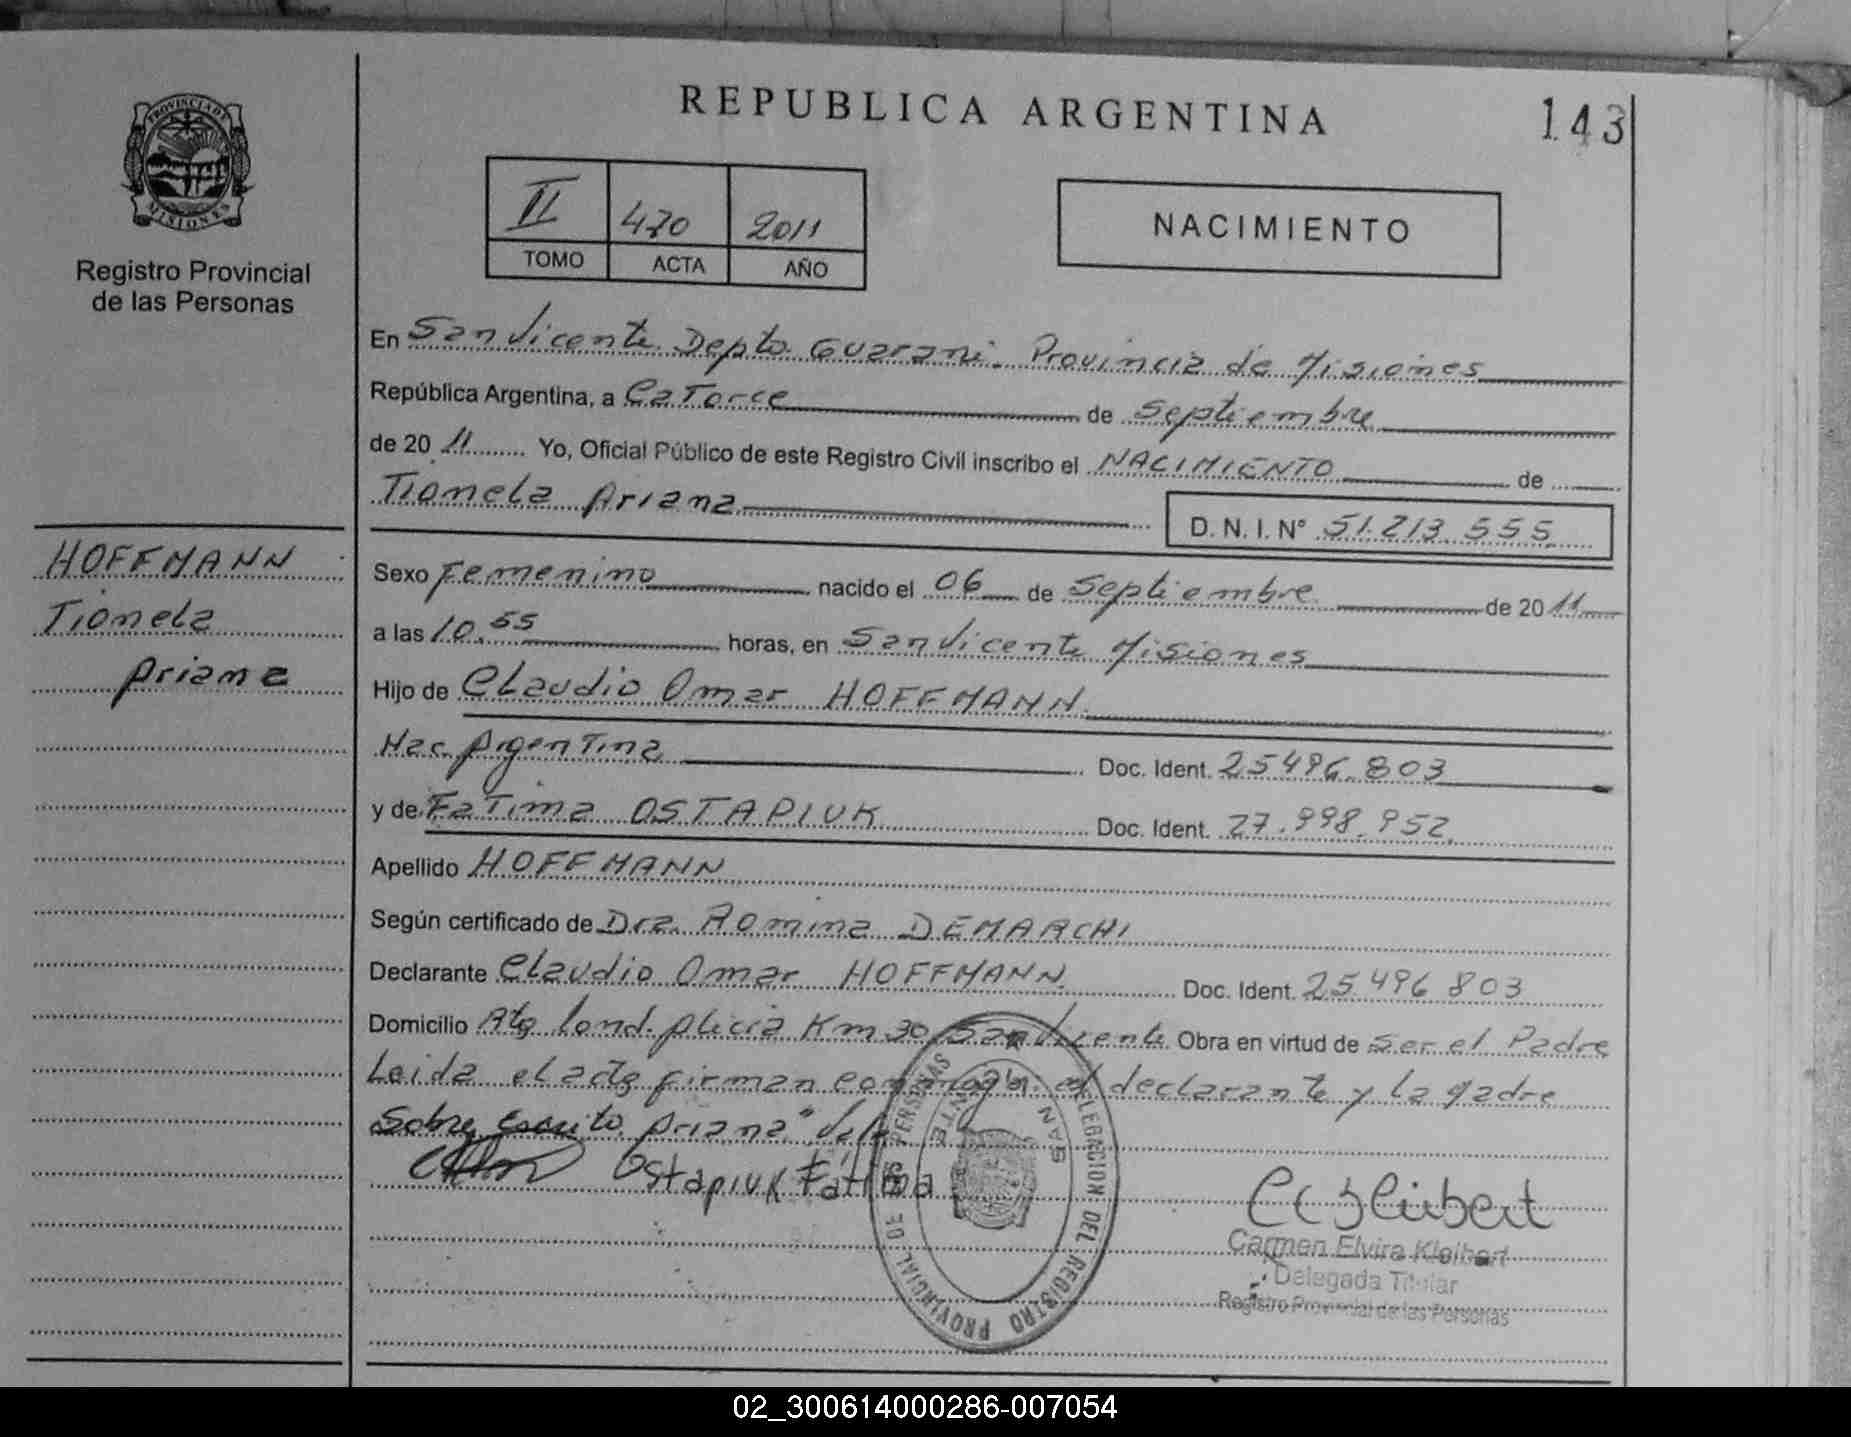 PROVINCIA DE
MISIONES
Registro Provincial
de las Personas
HOFFMANN
Tionela
Ariana
REPUBLICA ARGENTINA
143
II 470 2011
TOMO ACTA AÑO
NACIMIENTO
En San Vicente Depto Guarani. Provincia de Misiones
República Argentina, a Catorce de Septiembre
de 2011 Yo, Oficial Público de este Registro Civil inscribo el NACIMIENTO de
Tionela Ariana D. N. I. N° 51.213.555
Sexo Femenino nacido el 06 de Septiembre de 2011
a las 10.55 horas, en San Vicente Misiones
Hijo de Claudio Omar HOFFMANN
Nac. Argentina Doc. Ident. 25496.803
y de Fatima OSTAPIUK Doc. Ident. 27.998.952
Apellido HOFFMANN
Según certificado de Dra. Romina DEMARCHI
Declarante Claudio Omar HOFFMANN Doc. Ident. 25.496 803
Domicilio Km 30 San Vicente Obra en virtud de Ser el Padre
Leida el acta firman conmigo el declarante y la Madre
Sobre escrito Ariana"
Ostapiuk Fátima
DELEGACION DEL REGISTRO PROVINCIAL DE LAS PERSONAS
SAN VICENTE
Carmen Elvira Kleibert
Delegada Titular
Registro Provincial de las Personas
02_300614000286-007054